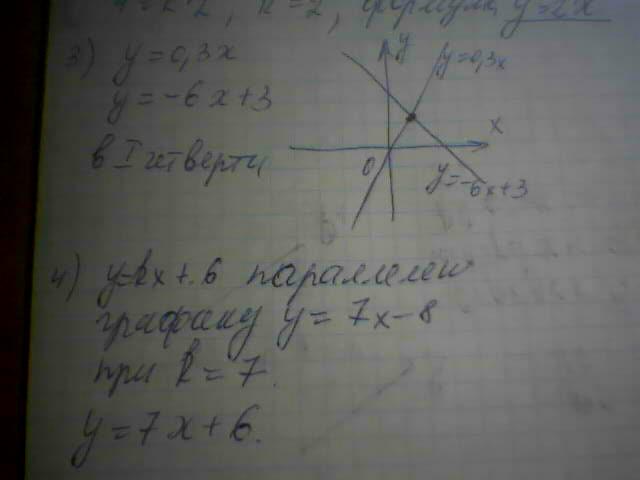 k=2, формула y=2x
3) y=0,3x
y=-6x+3
в I четверти
y
y=0,3x
x
0
y=-6x+3
4) y=kx+6 параллелен
графику y=7x-8
при k=7.
y=7x+6.